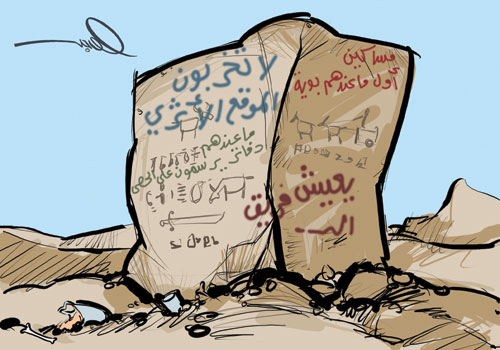 مساكين
أول ماعندهم بوية
لا تخربون
الموقع الأثري
ماعندهم
دفاتر يرسمون على الحصى
يعيش فريق
الـ...